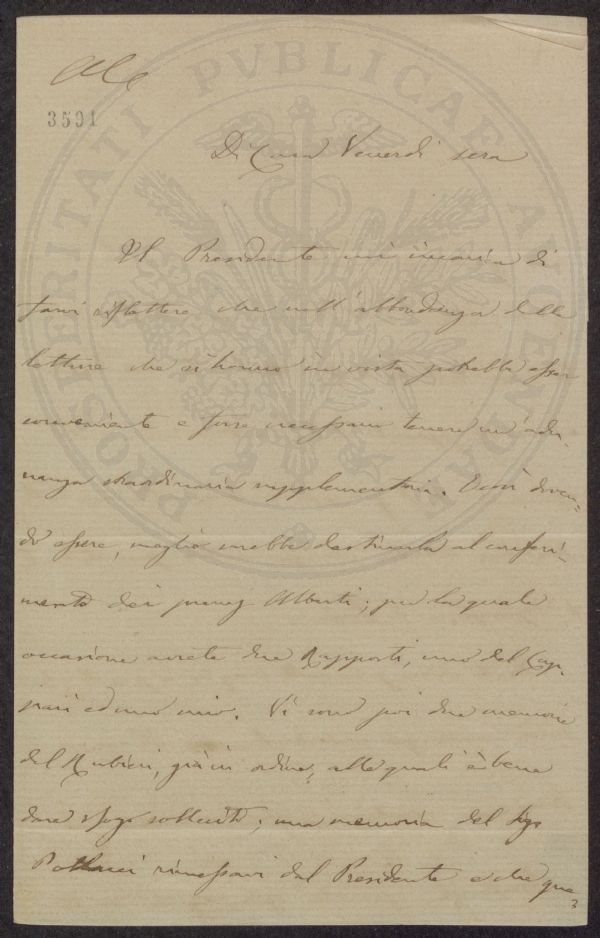 3591
Di Casa Venerdì sera
Il Presidente mi incarica di
farvi riflettere che nell'abbondanza delle
letture che si hanno in vista potrebbe esser
conveniente e forse necessario tenere un'adu-
nanza straordinaria supplementaria. E così doven-
do essere, meglio sarebbe destinarla al conferi-
mento dei premj Alberti; per la quale
occasione avrete due Rapporti, uno del Cap-
pari ed uno mio. Vi sono poi due memorie
del Rubieri, già in ordine, alle quali è bene
dare sfogo sollecito; una memoria del Sigr
rimessavi dal Presidente e che que
PROSPERITATI PVBLICAE AVGENDAE